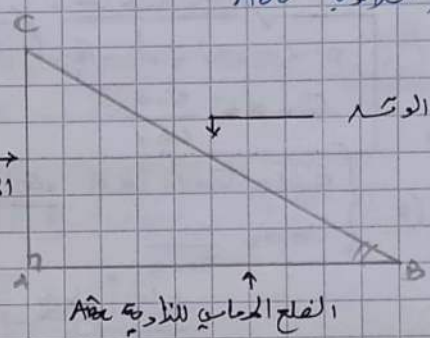 ABC
C
الوتر
A
B
الضلع المحاذي للزاوية ABC